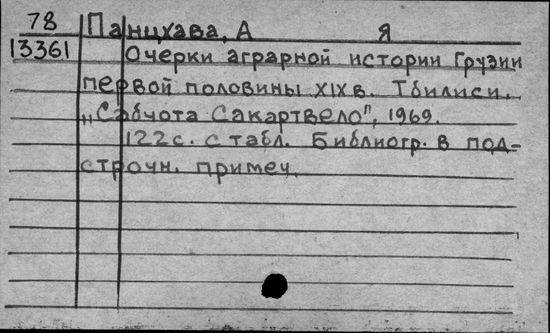 78 Панцхава, А Я
13361 Очерки аграрной истории Грузии
первой половины XIX в. Тбилиси.
„Сабчота Сакартвело", 1969.
122с. с табл. Библиогр. в под-
строчн. примеч.